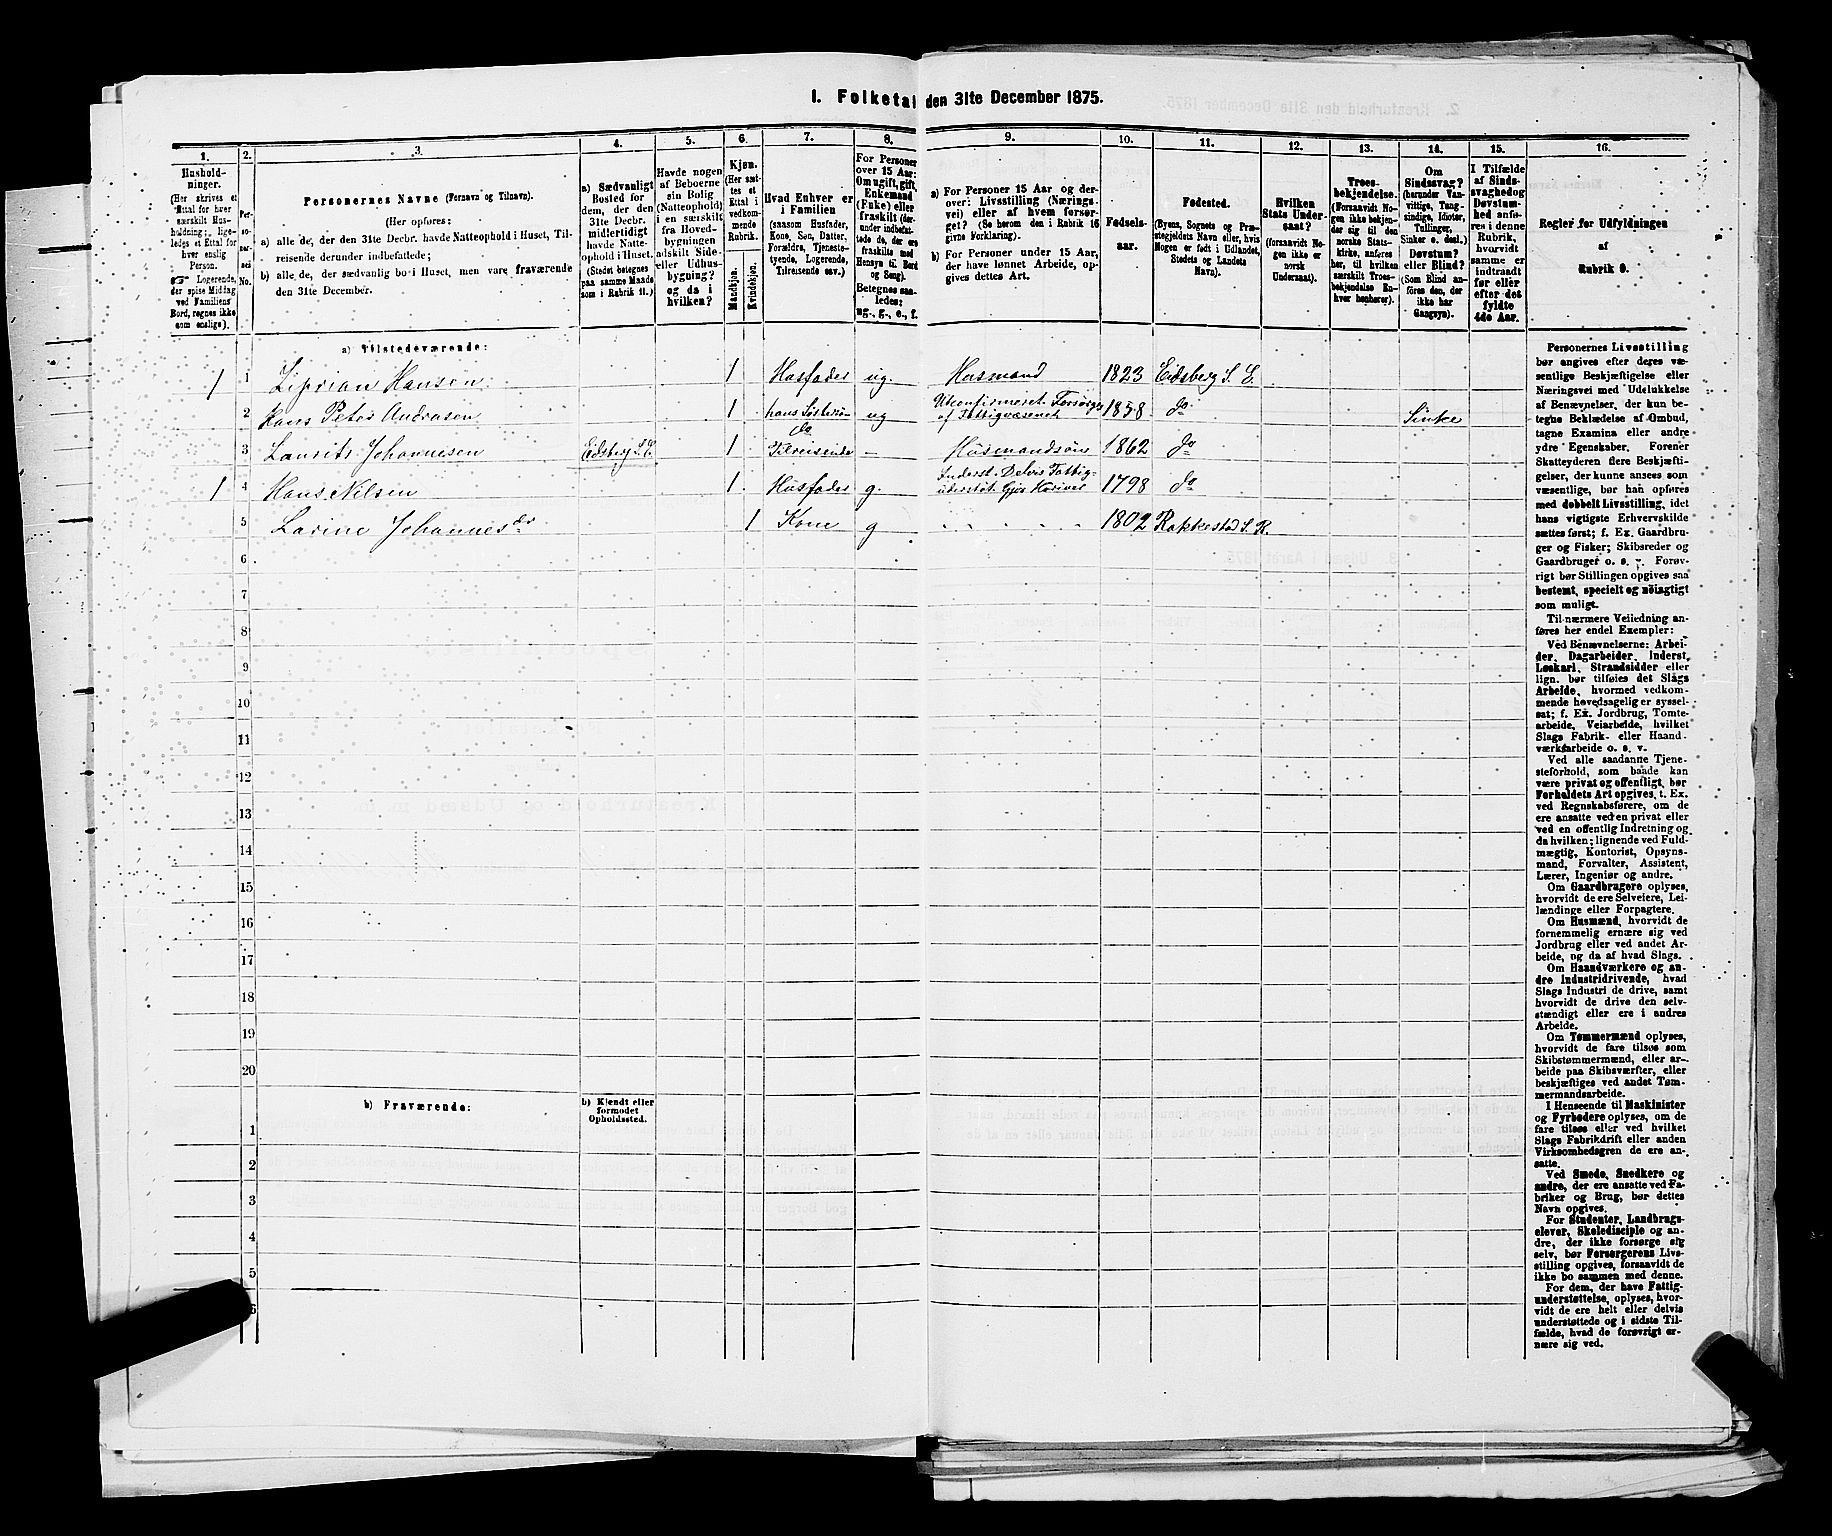 1. Folketal den 31te December 1875.
1.
Husholdninger.
(Her skrives et Ettal for hver særskilt Husholdning; ligeledes et Ettal for hver enslig Person.
Logerende, der spise Middag ved Familiens Bord, regnes ikke som enslige).
2.
Personernes No.
3.
Personernes Navne (Fornavn og Tilnavn).
(Her opføres:
a) alle de, der den 31te Decbr. havde Natteophold i Huset, Tilreisende derunder indbefattede;
b) alle de, der sædvanlig bo i Huset, men vare fraværende den 31te December.
4.
a) Sædvanligt Bosted for dem, der den 31te Decbr. midlertidigt havde Natteophold i Huset.
(Stedet betegnes paa samme Maade som i Rubrik 11.)
5.
Havde nogen af Beboerne sin Bolig (Natteophold) i en særskilt fra Hovedbygningen adskilt Side- eller Udhusbygning? og da i hvilken?
6.
Kjøn.
(Her sættes et Ettal i vedkommende Rubrik.
Mandkjøn.
Kvindekjøn.
7.
Hvad Enhver er i Familien
(saasom Husfader, Kone, Søn, Datter, Forældre, Tjenestetyende, Logerende, Tilreisende osv.)
8.
For Personer over 15 Aar: Om ugift, gift, Enkemand (Enke) eller fraskilt (derunder indbefattede de, der ere fraskilte med Hensyn til Bord og Seng).
Betegnes saaledes:
ug., g., e., f.
9.
a) For Personer 15 Aar og derover: Livsstilling (Næringsvei) eller af hvem forsørget? (Se herom den i Rubrik 16 givne Forklaring).
b) For Personer under 15 Aar, der have lønnet Arbeide, opgives dettes Art.
10.
Fødselsaar.
11.
Fødested.
(Byens, Sognets og Præstegjeldets Navn eller, hvis Nogen er født i Udlandet, Stedets og Landets Navn).
12.
Hvilken Stats Undersaat?
(forsaavidt Nogen ikke er norsk Undersaat).
13.
Troesbekjendelse.
(Forsaavidt Nogen ikke bekjender sig til den norske Statskirke, anføres her, til hvilken særskilt Troesbekjendelse Enhver henhører).
14.
Om Sindssvag?
(herunder Vanvittige, Tungsindige, Idioter, Tullinger, Sinker o. desl.)
Døvstum? eller Blind?
(Som Blind anføres den, der ikke har Gangsyn).
15.
I Tilfælde af Sindssvaghed og Døvstumhed anføres i denne Rubrik, hvorvidt samme er indtraadt før eller efter det fyldte 4de Aar.
16.
Regler for Udfyldningen af Rubrik 9.
a) Tilstedeværende:
1 1 Ziprian Hansen 1 Husfader ug. Husmand 1823 Eidsberg S. E.
2 Hans Peter Andrasen 1 hans Søstersøn ug Ukonfirmeret Forsørges af Fattigvæsenet 1858 do Sinke
3 Laurits Johannesen Eidsberg S. E. 1 do Tilreisende – Husmandsøn 1862 do
1 4 Hans Nilsen 1 Husfader g. Inderst. Delvis Fattigunderstøt. 1798 do
5 Larine Johannesdr 1 Kone g 1802 Rakkestad S. R.
6
7
8
9
10
11
12
13
14
15
16
17
18
19
20
b) Fraværende:
b) Kjendt eller formodet Opholdssted.
1
2
3
4
5
6
Personernes Livsstilling
bør angives efter deres væ-
sentlige Beskjæftigelse eller
Næringsvei med Udelukkelse
af Benævnelser, der kun be-
tegne Beklædelse af Ombud,
tagne Examina eller andre
ydre Egenskaber. Forener
Skatteyderen flere Beskjæfti-
gelser, der kunne ansees som
væsentlige, bør han opføres
med dobbelt Livsstilling, idet
hans vigtigste Erhvervskilde
sættes først; f. Ex. Gaardbru-
ger og Fisker; Skibsreder og
Gaardbruger o. s. v. Forøv-
rigt bør Stillingen opgives saa
bestemt, specielt og nøiagtigt
som muligt.
Til nærmere Veiledning an-
føres her endel Exempler:
Ved Benævnelserne: Arbei-
der, Dagarbeider, Inderst,
Løskarl, Strandsidder eller
lign. bør tilføies det Slags
Arbeide, hvormed vedkom-
mende hovedsagelig er syssel-
sat; f. Ex. Jordbrug, Tomte-
arbeide, Veiarbeide, hvilket
Slags Fabrik- eller Haand-
værksarbeide o. s. v.
Ved alle saadanne Tjene-
steforhold, som baade kan
være privat og offentligt, bør
Forholdets Art opgives, t. Ex.
ved Regnskabsførere, om de
ere ansatte ved en privat eller
ved en offentlig Indretning og
da hvilken; lignende ved Fuld-
mægtig, Kontorist, Opsyns-
mand, Forvalter, Assistent,
Lærer, Ingeniør og andre.
Om Gaardbrugere oplyses,
hvorvidt de ere Selveiere, Lei-
lændinge eller Forpagtere.
Om Husmænd, hvorvidt de
fornemmelig ernære sig ved
Jordbrug eller ved andet Ar-
beide, og da af hvad Slags.
Om Haandværkere og an-
dre Industridrivende, hvad
Slags Industri de drive, samt
hvorvidt de drive den selv-
stændigt eller ere i andres
Arbeide.
Om Tømmermænd oplyses,
hvorvidt de fare tilsøs som
Skibstømmermænd, eller ar-
beide paa Skibsværfter, eller
beskjæftiges ved andet Tøm-
mermandsarbeide.
I Henseende til Maskinister
og Fyrbødere oplyses, om de
fare tilsøs eller ved hvilket
Slags Fabrikdrift eller anden
Virksomhedsgren de ere an-
satte.
Ved Smede, Snedkere og
andre, der ere ansatte ved Fa-
briker og Brug, bør dettes
Navn opgives.
For Studenter, Landbrugs-
elever, Skoledisciple og an-
dre, der ikke forsørge sig
selv, bør Forsørgerens Livs-
stilling opgives, forsaavidt de
ikke bo sammen med denne.
For dem, der have Fattig-
understøttelse, oplyses, hvor-
vidt de ere helt eller delvis
understøttede og i sidste Til-
fælde, hvad de forøvrigt er-
nære sig ved.